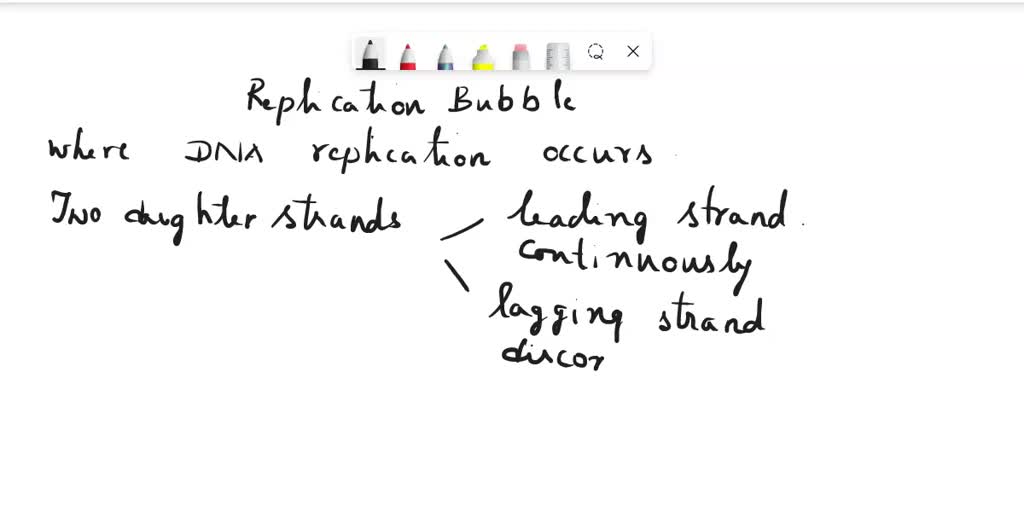 Replication Bubble
where DNA replication occurs
Two daughter strands
leading strand.
continuously
lagging strand
discon